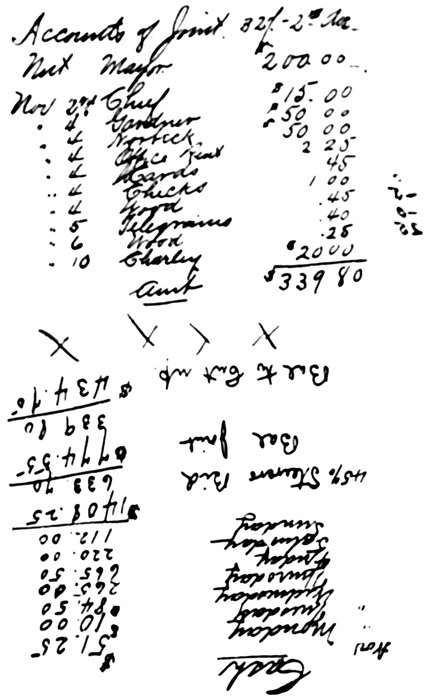 Accounts of Joint 327-2nd Av.
Nut Mayor $200 00
Nov 2nd Chief $15.00
" 4 Gardner $50 00
" 4 Norbeck $50 00
" 4 Office Rent 2 25
" 4 Cards 45
" 4 Checks 1 00
" 4 Wood .45
" 5 Telegrams .40
" 6 Wood .25
" 10 Charley $20 00
Amt $339 80
X X X X
Cash
Nov Monday $51.25
" Tuesday 10.00
" Wednesday 84.50
Thursday 265 00
Friday 665.50
Saturday 220.00
Sunday 112.00
$1408.25
45% Steerers Bid 633 70
Bal Joint $774.55
339 80
Bal to Cut up $434.75